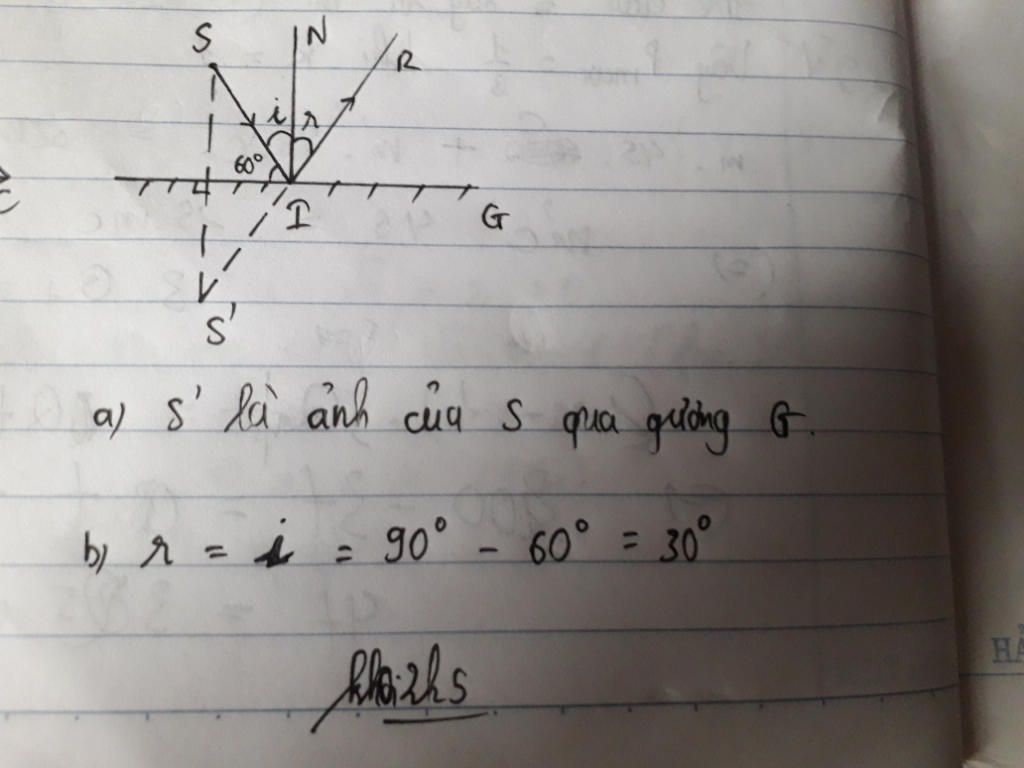 S N R
i r
60°
I G
S'
a) S' là ảnh của S qua gương G.
b) r = i = 90° - 60° = 30°
HÀ